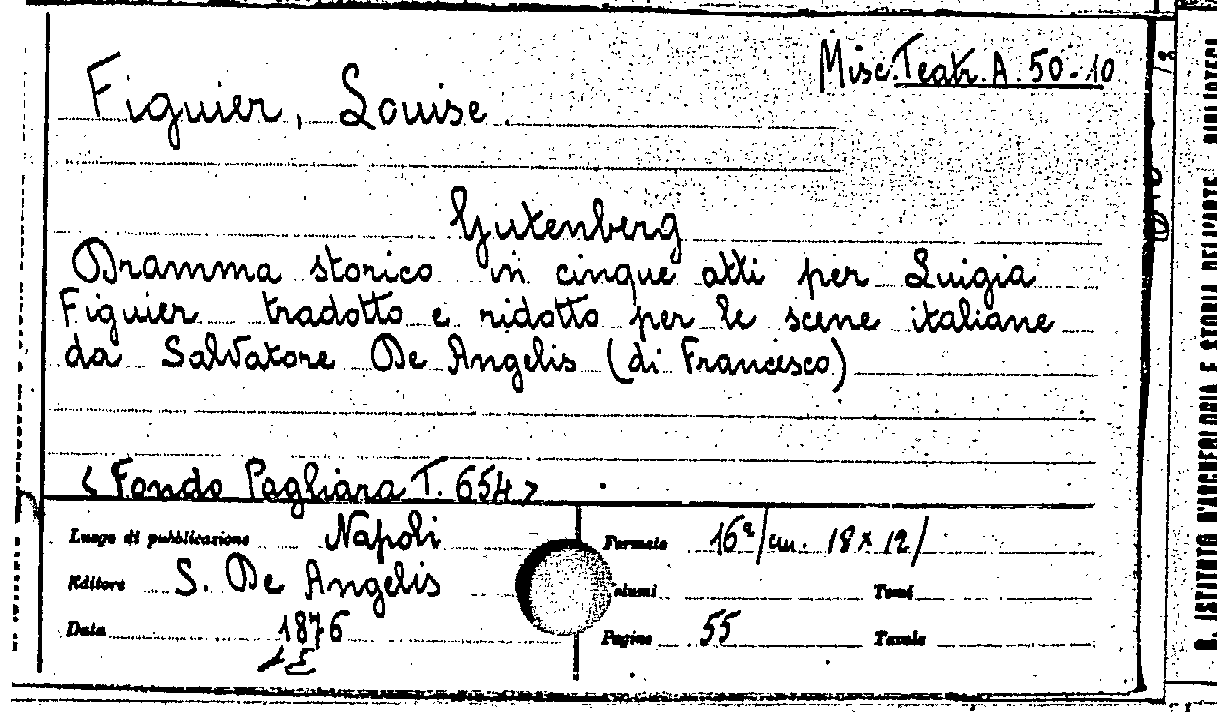 Misc. Teatr. A. 50-10
Figuier, Louise.
Gutenberg
Dramma storico in cinque atti per Luigia
Figuier tradotto e ridotto per le scene italiane
da Salvatore De Angelis (di Francesco)
< Fondo Pagliara T. 654 >
Luogo di pubblicazione Napoli
Editore S. De Angelis
Data 1876
Formato 16ª/cm. 18x12/
Volumi Tomi
Pagine 55 Tavole
R. ISTITUTO D'ARCHEOLOGIA E STORIA DELL'ARTE